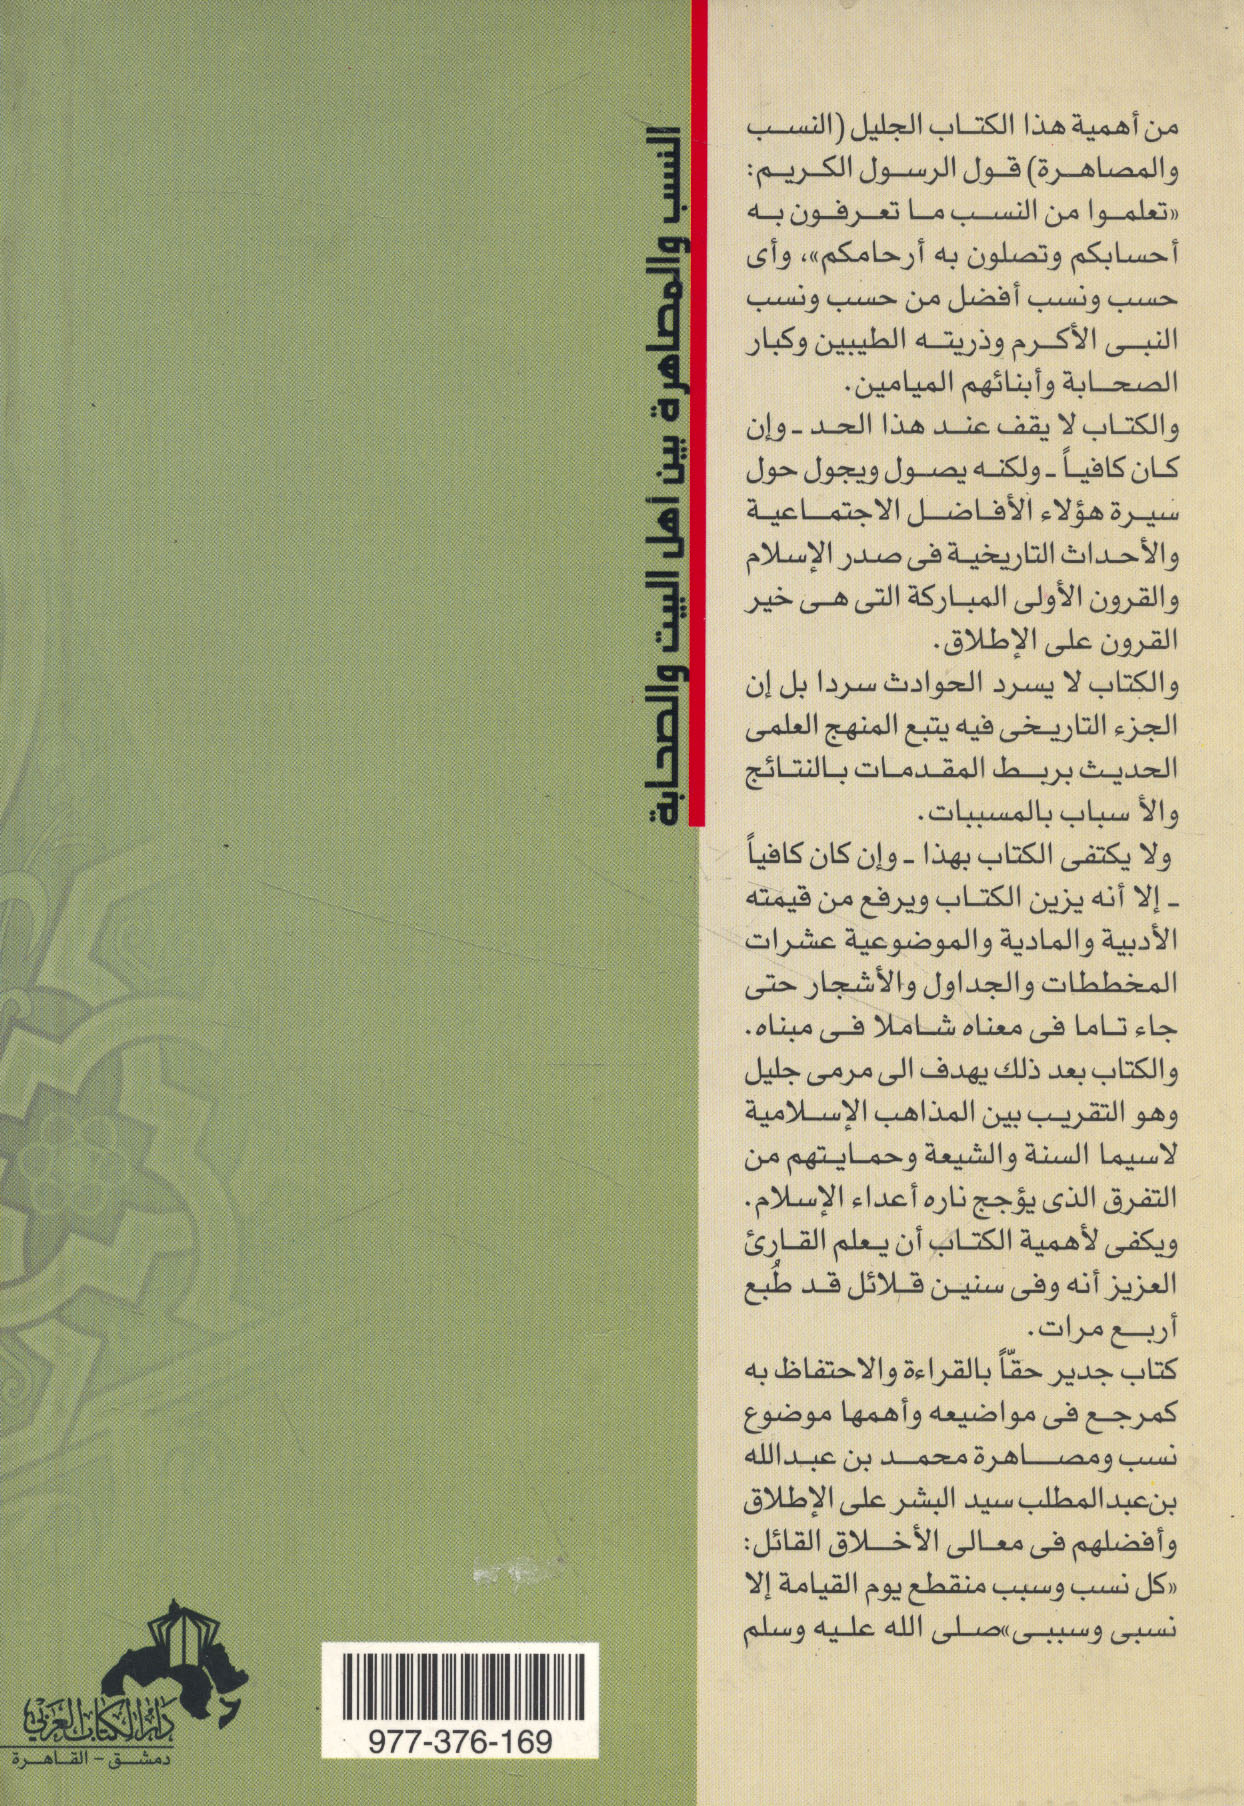 من أهمية هذا الكتاب الجليل (النسب
والمصاهرة) قول الرسول الكريم:
«تعلموا من النسب ما تعرفون به
أحسابكم وتصلون به أرحامكم»، وأى
حسب ونسب أفضل من حسب ونسب
النبى الأكرم وذريته الطيبين وكبار
الصحابة وأبنائهم الميامين.
والكتاب لا يقف عند هذا الحد - وإن
كان كافياً - ولكنه يصول ويجول حول
سيرة هؤلاء الأفاضل الاجتماعية
والأحداث التاريخية فى صدر الإسلام
والقرون الأولى المباركة التى هى خير
القرون على الإطلاق.
والكتاب لا يسرد الحوادث سردا بل إن
الجزء التاريخى فيه يتبع المنهج العلمى
الحديث بربط المقدمات بالنتائج
والأ سباب بالمسببات.
ولا يكتفى الكتاب بهذا - وإن كان كافياً
- إلا أنه يزين الكتاب ويرفع من قيمته
الأدبية والمادية والموضوعية عشرات
المخططات والجداول والأشجار حتى
جاء تاما فى معناه شاملا فى مبناه.
والكتاب بعد ذلك يهدف الى مرمى جليل
وهو التقريب بين المذاهب الإسلامية
لاسيما السنة والشيعة وحمايتهم من
التفرق الذى يؤجج ناره أعداء الإسلام.
ويكفى لأهمية الكتاب أن يعلم القارئ
العزيز أنه وفى سنين قلائل قد طُبع
أربع مرات.
كتاب جدير حقّاً بالقراءة والاحتفاظ به
كمرجع فى مواضيعه وأهمها موضوع
نسب ومصاهرة محمد بن عبدالله
بن عبدالمطلب سيد البشر على الإطلاق
وأفضلهم فى معالى الأخلاق القائل:
«كل نسب وسبب منقطع يوم القيامة إلا
نسبى وسببى» صلى الله عليه وسلم
النسب والمصاهرة بين أهل البيت والصحابة
977-376-169
دار الكتاب العربي
دمشق - القاهرة